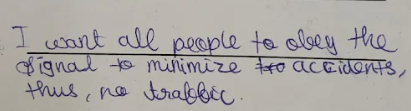 I want all people to obey the
signal to minimize accidents,
thus, no trabbic.